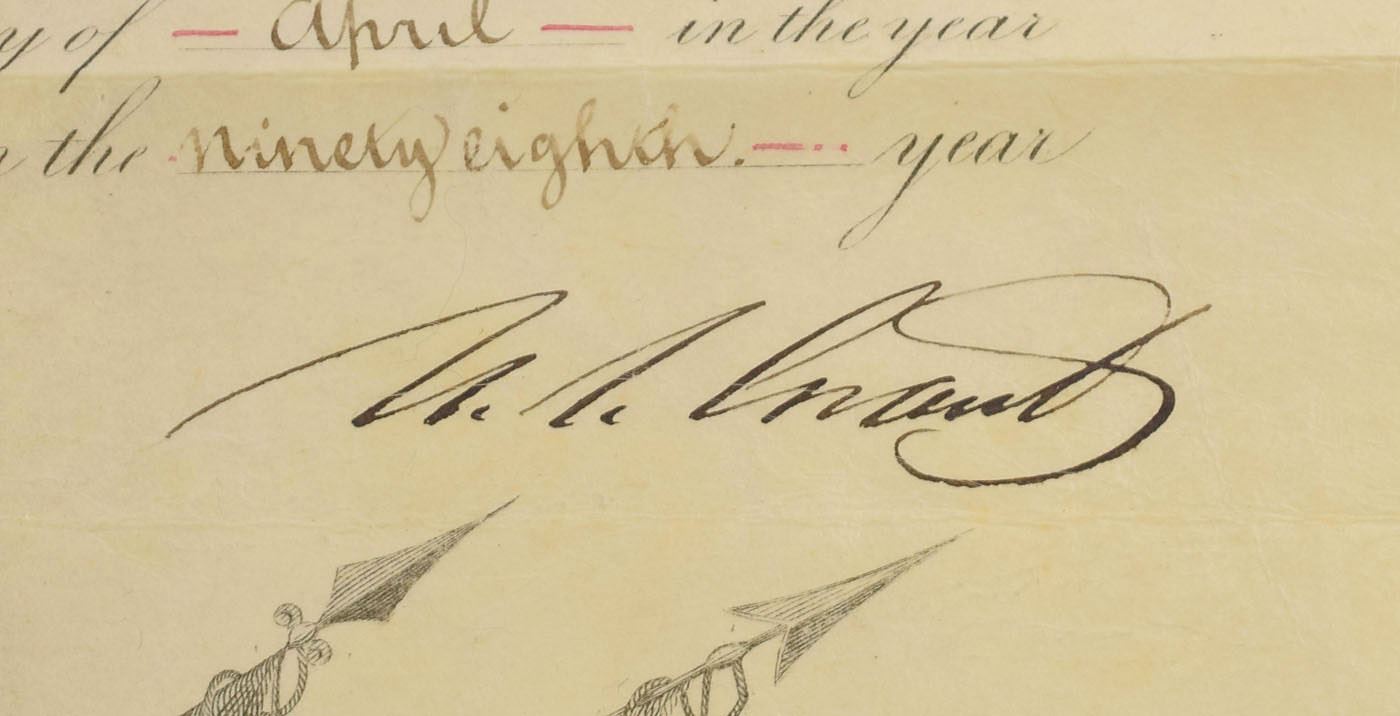 y of — April — in the year
the Ninety eighth. year
U. S. Grant